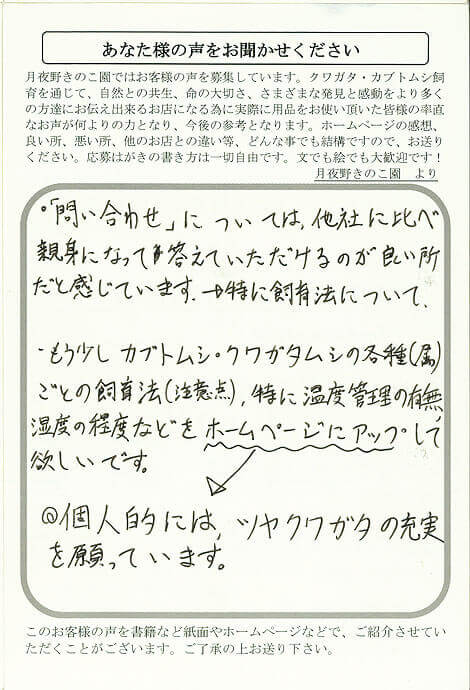 あなた様の声をお聞かせください
月夜野きのこ園ではお客様の声を募集しています。クワガタ・カブトムシ飼
育を通じて、自然との共生、命の大切さ、さまざまな発見と感動をより多く
の方達にお伝え出来るお店になる為に実際に用品をお使い頂いた皆様の率直
なお声が何よりの力となり、今後の参考となります。ホームページの感想、
良い所、悪い所、他のお店との違い等、どんな事でも結構ですので、お送り
ください。応募はがきの書き方は一切自由です。文でも絵でも大歓迎です！
月夜野きのこ園　より
・「問い合わせ」に ついては、他社に比べ
親身になって答えていただけるのが良い所
だと感じています。→特に飼育法について、
・もう少し カブトムシ・クワガタムシの各種(属)
ごとの飼育法(注意点)、特に温度管理の有無、
湿度の程度などをホームページにアップして
欲しいです。
◎個人的には、ツヤクワガタの充実
を願っています。
このお客様の声を書籍など紙面やホームページなどで、ご紹介させてい
ただくことがございます。ご了承の上お送り下さい。